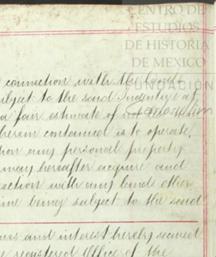 CENTRO DE
ESTUDIOS
DE HISTORIA
DE MEXICO
FUNDACIÓN
connection with the bonds
subject to the said Indenture at
a fair estimate of
herein contained is to operate,
tion any personal property
may hereafter acquire and
ection with any lands other
time being subject to the said
and interest hereby secured
registered Office of the